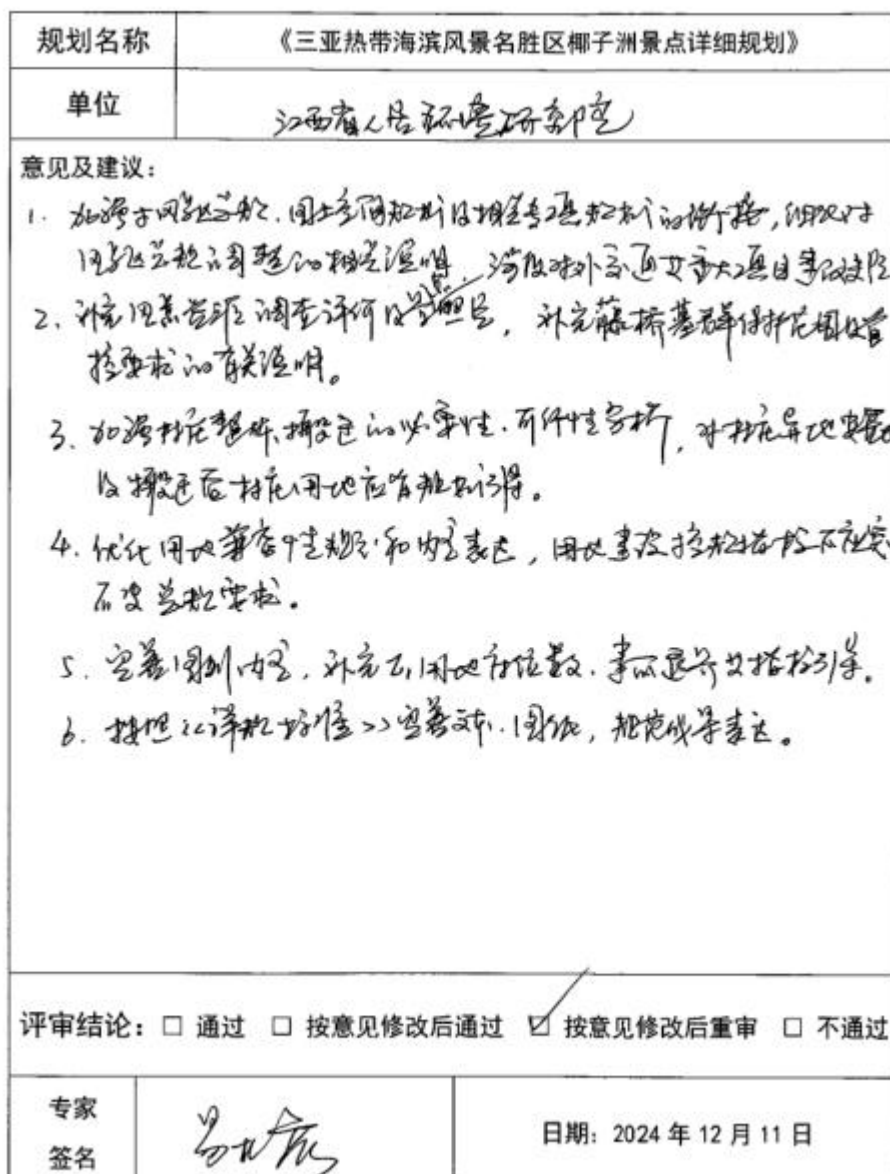 规划名称 《三亚热带海滨风景名胜区椰子洲景点详细规划》
单位 江西省人居环境研究院
意见及建议：
1. 加强与风景区总规、国土空间规划及相关专项规划的衔接，细化对
风景区总规调整的相关说明，涉及对外交通及重大项目
2、补充风景资源调查评价及，补充藤桥墓群保护范围及管
控要求的有关说明。
3、加强村庄整体搬迁的必要性、可行性分析，对村庄异地安置
及搬迁后村庄用地应有规划引导。
4. 优化用地兼容性规定和内容表达，用地建设控规指标不应突
破总规要求。
5. 完善图则内容，补充用地停位数、建筑退界及指标引导。
6. 按照《详规标准》完善文本、图纸，规范成果表达。
评审结论：□ 通过 □ 按意见修改后通过 ☑ 按意见修改后重审 □ 不通过
专家
签名
日期：2024 年 12 月 11 日